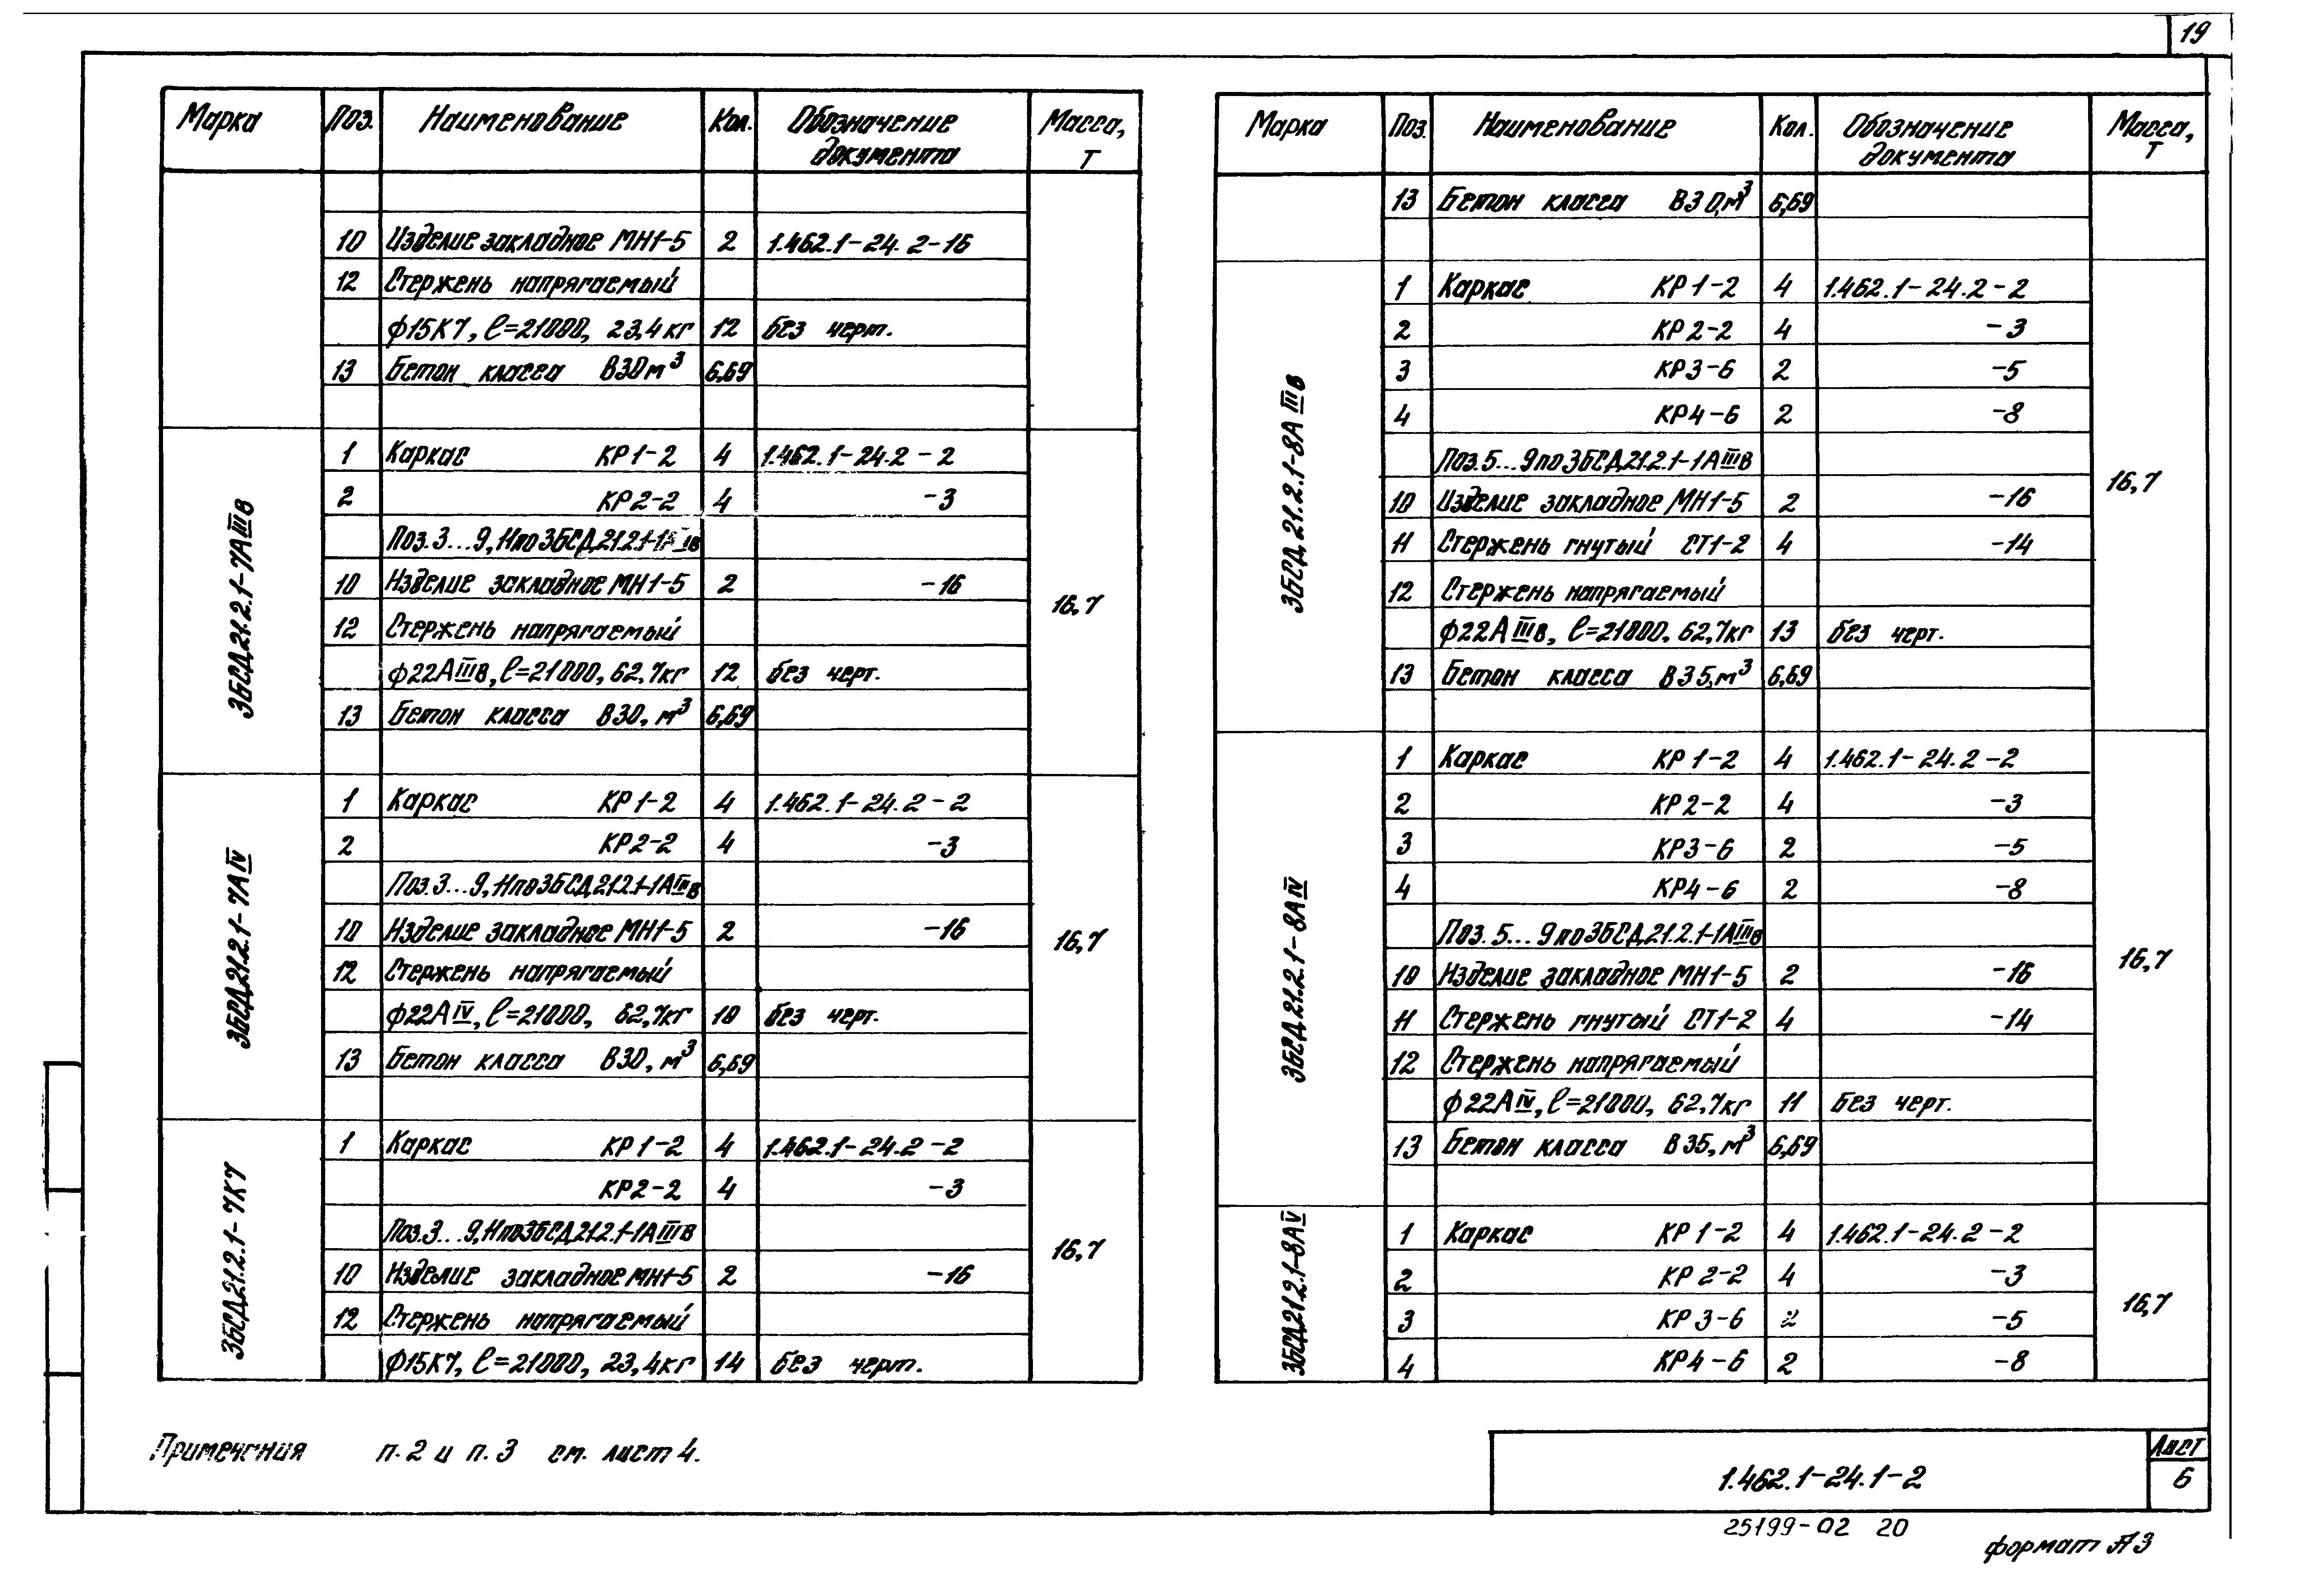 19
Марка Поз. Наименование Кол. Обозначение документа Масса, т
10 Изделие закладное МН1-5 2 1.462.1-24.2-16
12 Стержень напрягаемый
ф15К7, ℓ=21000, 23,4кг 12 без черт.
13 Бетон класса В30м³ 6,69
3БСД21.2.1-7АIIIв 16,7
1 Каркас КР1-2 4 1.462.1-24.2-2
2 КР2-2 4 -3
Поз.3...9,11по3БСД21.2.1-1АIIIв
10 Изделие закладное МН1-5 2 -16
12 Стержень напрягаемый
ф22АIIIв, ℓ=21000, 62,7кг 12 без черт.
13 Бетон класса В30, м³ 6,69
3БСД21.2.1-7АIV 16,7
1 Каркас КР1-2 4 1.462.1-24.2-2
2 КР2-2 4 -3
Поз.3...9,11по3БСД21.2.1-1АIIIв
10 Изделие закладное МН1-5 2 -16
12 Стержень напрягаемый
ф22АIV, ℓ=21000, 62,7кг 10 без черт.
13 Бетон класса В30, м³ 6,69
3БСД21.2.1-7К7 16,7
1 Каркас КР1-2 4 1.462.1-24.2-2
КР2-2 4 -3
Поз.3...9,11по3БСД21.2.1-1АIIIв
10 Изделие закладное МН1-5 2 -16
12 Стержень напрягаемый
ф15К7, ℓ=21000, 23,4кг 14 без черт.
Марка Поз. Наименование Кол. Обозначение документа Масса, т
13 Бетон класса В30,м³ 6,69
3БСД21.2.1-8АIIIв 16,7
1 Каркас КР1-2 4 1.462.1-24.2-2
2 КР2-2 4 -3
3 КР3-6 2 -5
4 КР4-6 2 -8
Поз.5...9по3БСД21.2.1-1АIIIв
10 Изделие закладное МН1-5 2 -16
11 Стержень гнутый СТ1-2 4 -14
12 Стержень напрягаемый
ф22АIIIв, ℓ=21000, 62,7кг 13 без черт.
13 Бетон класса В35,м³ 6,69
3БСД21.2.1-8АIV 16,7
1 Каркас КР1-2 4 1.462.1-24.2-2
2 КР2-2 4 -3
3 КР3-6 2 -5
4 КР4-6 2 -8
Поз.5...9по3БСД21.2.1-1АIIIв
10 Изделие закладное МН1-5 2 -16
11 Стержень гнутый СТ1-2 4 -14
12 Стержень напрягаемый
ф22АIV, ℓ=21000, 62,7кг 11 Без черт.
13 Бетон класса В35,м³ 6,69
3БСД21.2.1-8АV 16,7
1 Каркас КР1-2 4 1.462.1-24.2-2
2 КР2-2 4 -3
3 КР3-6 2 -5
4 КР4-6 2 -8
Примечания п.2 и п.3 см. лист 4.
1.462.1-24.1-2
Лист
6
25199-02 20
формат А3